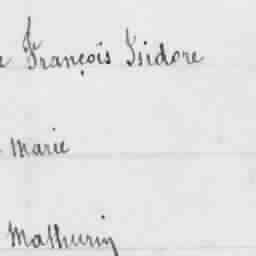 François Isidore
Marie
Mathurin